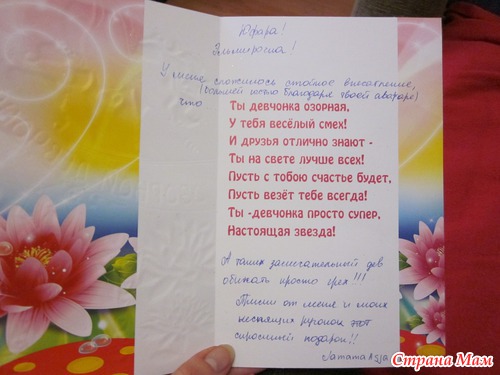 Юфара!
Эльмировна!
У меня сложилось стойкое впечатление,
(большей частью благодаря твоей аватаре)
что
Ты девчонка озорная,
У тебя весёлый смех!
И друзья отлично знают -
Ты на свете лучше всех!
Пусть с тобою счастье будет,
Пусть везёт тебе всегда!
Ты -девчонка просто супер,
Настоящая звезда!
А таких замечательных дев
обижать просто грех!!!
Прими от меня и моих
рученок этот
скромный подарок!!
TamamaAsja
Страна Мам